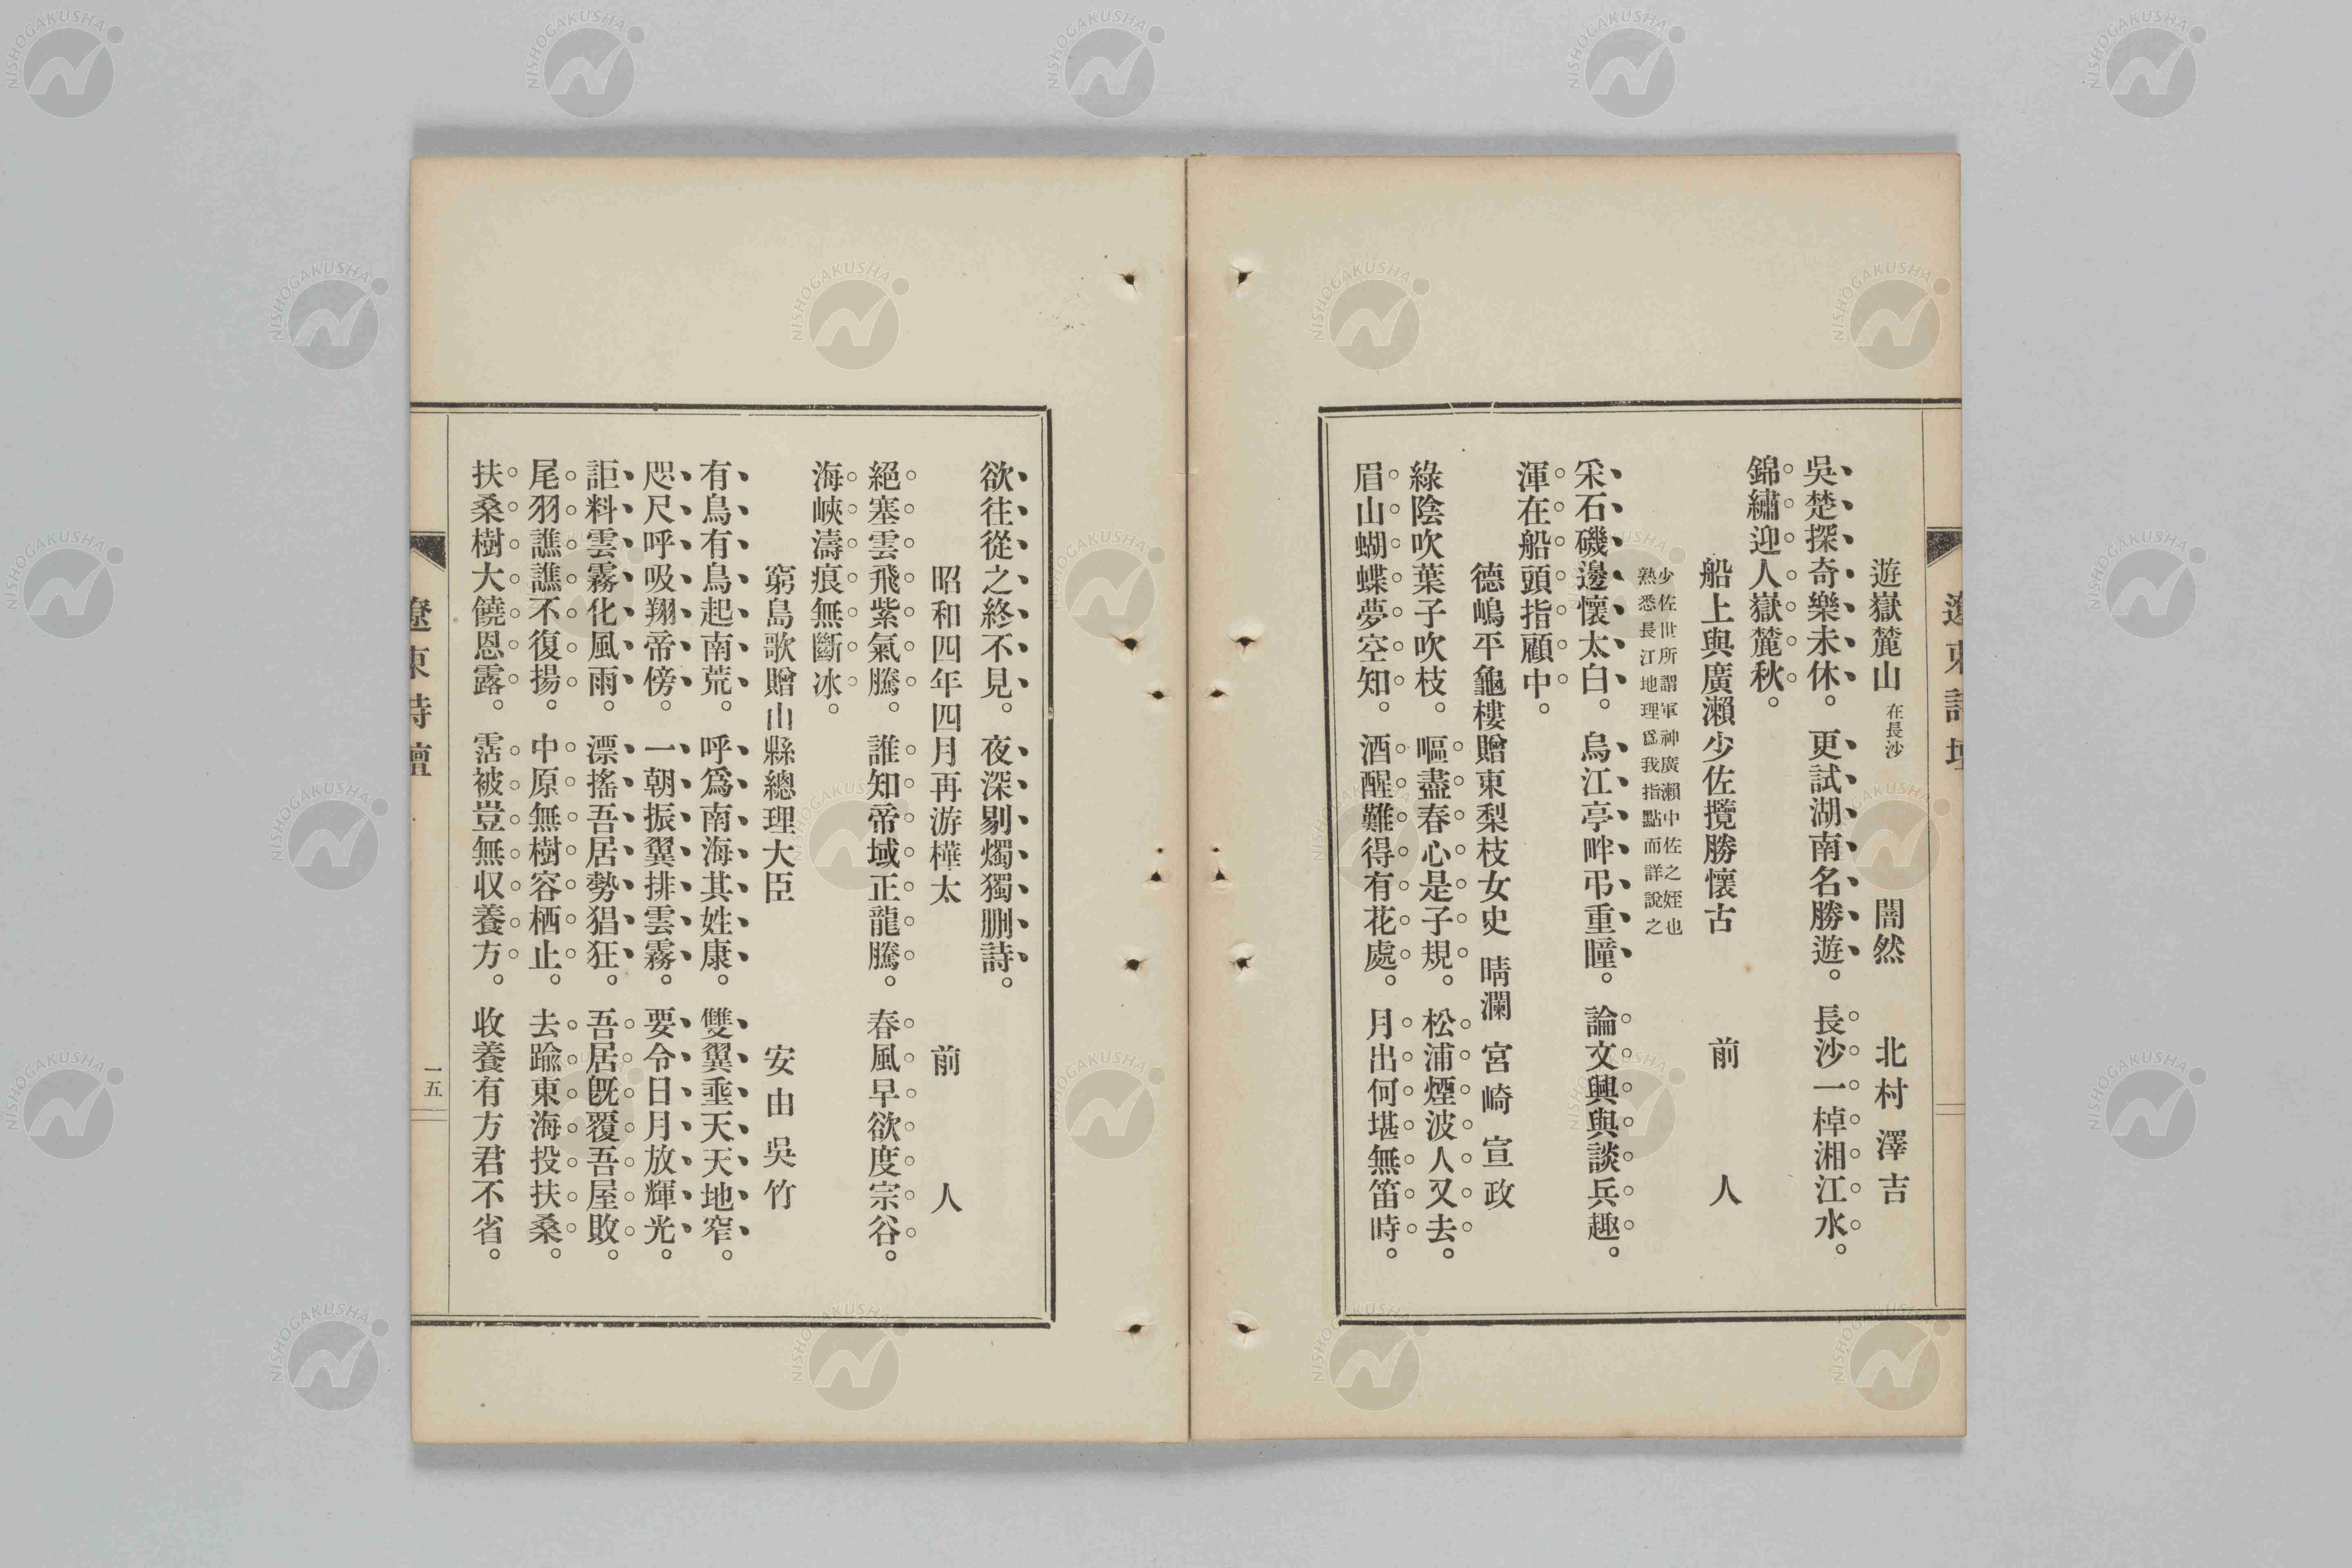 遼東詩壇
遊嶽麓山 在長沙 闇然 北村澤吉
吳楚探奇樂未休。更試湖南名勝遊。長沙一棹湘江水。
錦繡迎人嶽麓秋。
船上與廣瀨少佐攬勝懷古 前人
少佐世所謂軍神廣瀨中佐之姪也
熟悉長江地理爲我指點而詳說之
采石磯邊懷太白。烏江亭畔弔重瞳。論文興與談兵趣。
渾在船頭指顧中。
德嶋平龜樓贈東梨枝女史 晴瀾 宮崎宣政
綠陰吹葉子吹枝。嘔盡春心是子規。松浦煙波人又去。
眉山蝴蝶夢空知。酒醒難得有花處。月出何堪無笛時。
欲往從之終不見。夜深剔燭獨刪詩。
昭和四年四月再游樺太 前人
絕塞雲飛紫氣騰。誰知帝域正龍騰。春風早欲度宗谷。
海峽濤痕無斷冰。
窮島歌贈山縣總理大臣 安由吳竹
有鳥有鳥起南荒。呼爲南海其姓康。雙翼垂天天地窄。
咫尺呼吸翔帝傍。一朝振翼排雲霧。要令日月放輝光。
詎料雲霧化風雨。漂搖吾居勢猖狂。吾居旣覆吾屋敗。
尾羽譙譙不復揚。中原無樹容栖止。去踰東海投扶桑。
扶桑樹大饒恩露。霑被豈無収養方。收養有方君不省。
遼東詩壇
一五
NISHOGAKUSHA